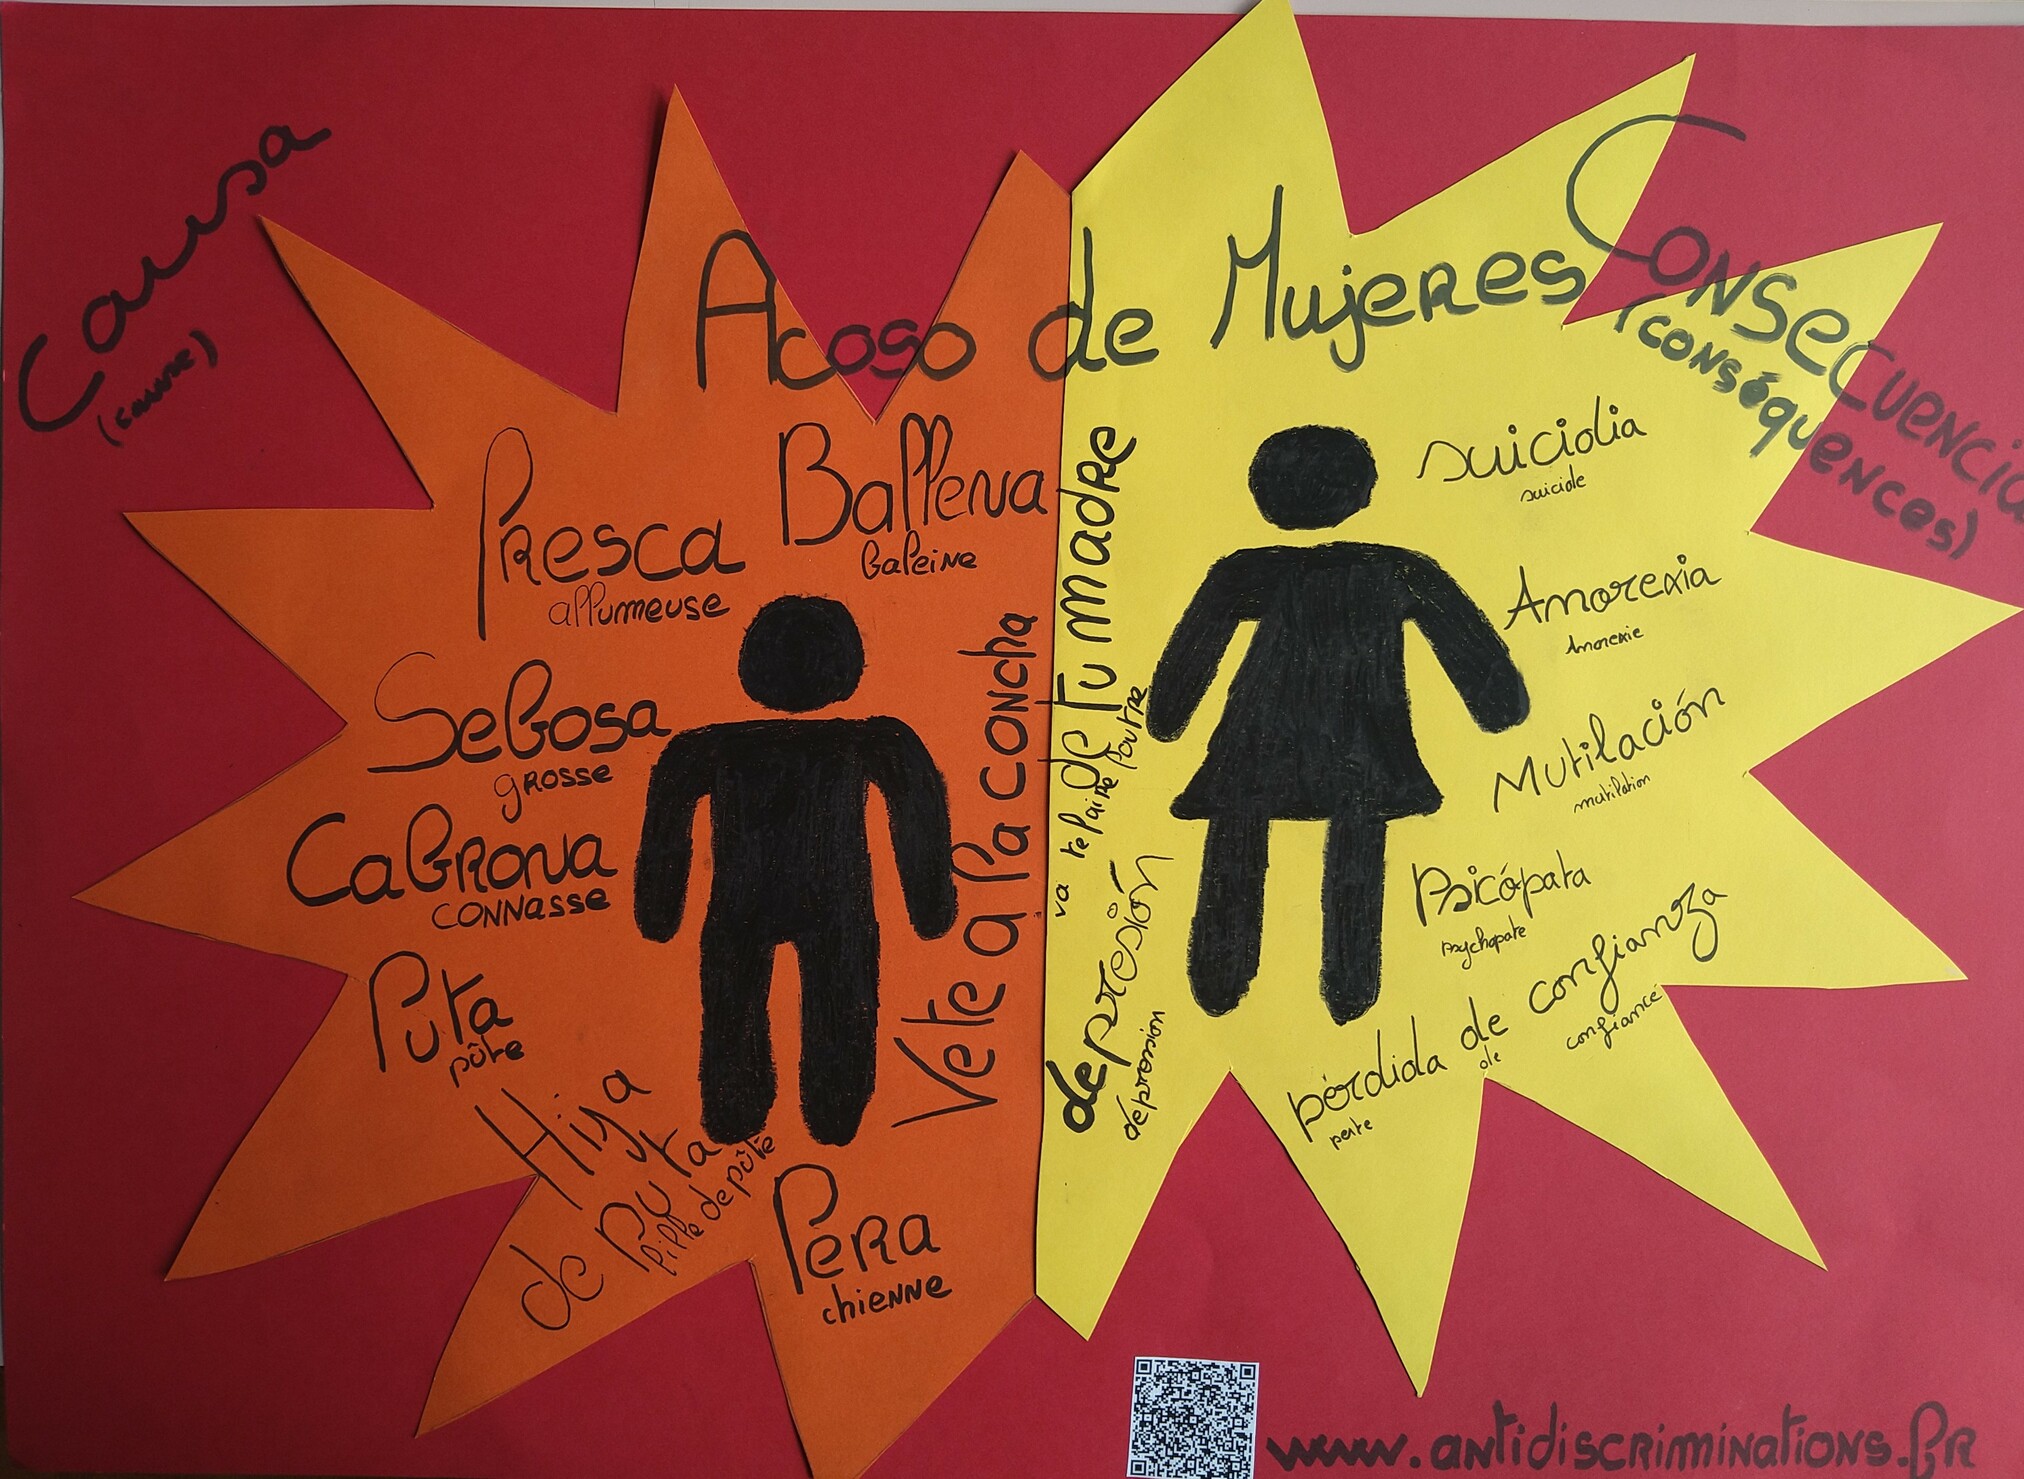 Causa
(cause)
Acoso de Mujeres
Consecuencia
(conséquences)
Presca
allumeuse
Ballena
baleine
Sebosa
grosse
Cabrona
connasse
Puta
pûte
Hija
de puta
fille de pûte
Pera
chienne
Vete a la concha
de tu madre
va te faire foutre
depresión
dépression
suicidia
suicide
Amorexia
Amorexie
Mutilación
mutilation
Psicópata
psychopate
pérdida de confianza
perte de confiance
www.antidiscriminations.fr